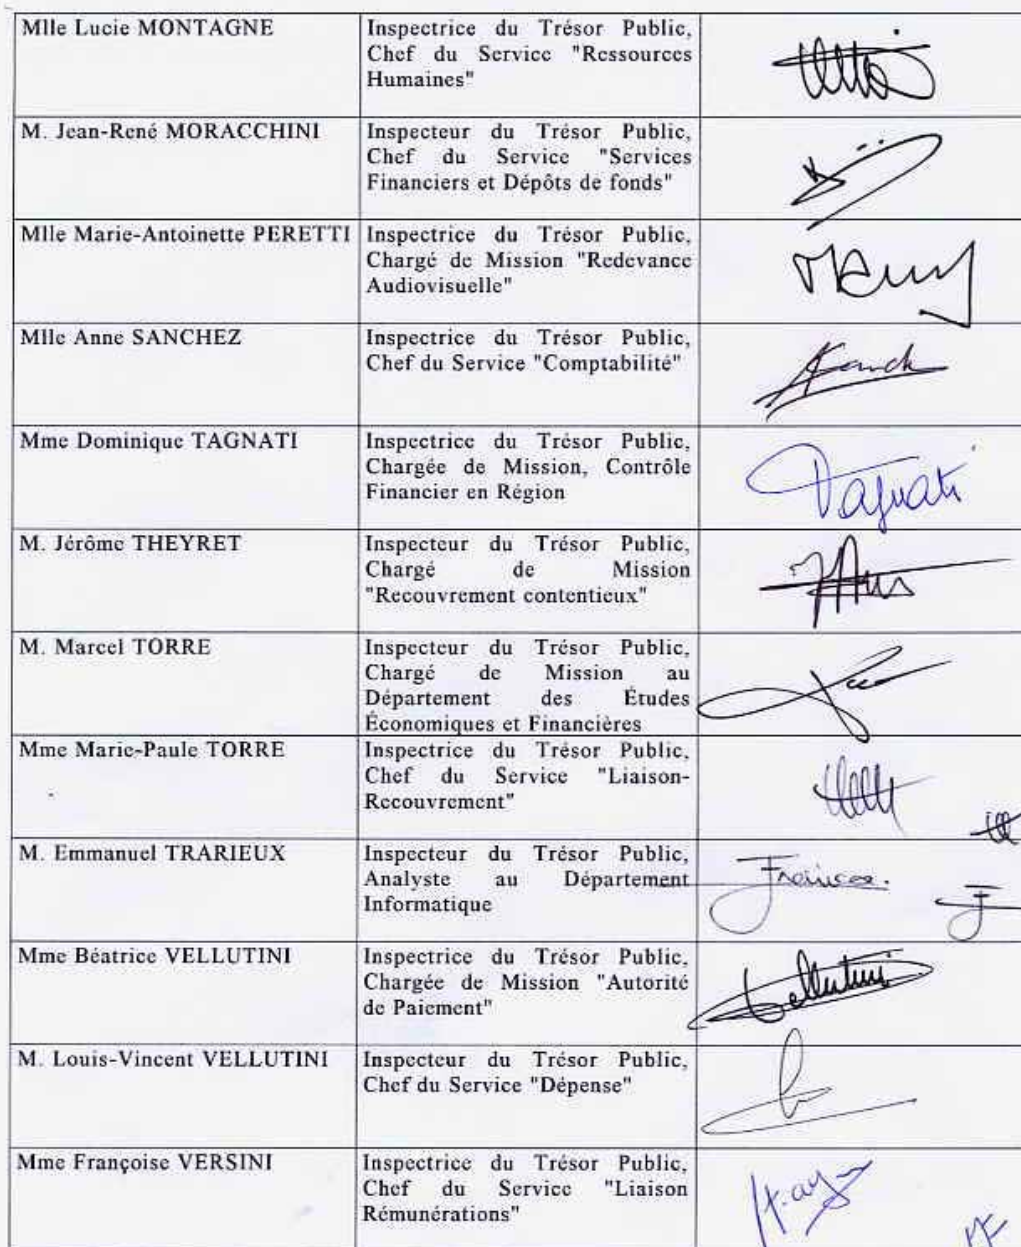 Mlle Lucie MONTAGNE
Inspectrice du Trésor Public,
Chef du Service "Ressources
Humaines"
M. Jean-René MORACCHINI
Inspecteur du Trésor Public,
Chef du Service "Services
Financiers et Dépôts de fonds"
Mlle Marie-Antoinette PERETTI
Inspectrice du Trésor Public,
Chargé de Mission "Redevance
Audiovisuelle"
Mlle Anne SANCHEZ
Inspectrice du Trésor Public,
Chef du Service "Comptabilité"
Mme Dominique TAGNATI
Inspectrice du Trésor Public,
Chargée de Mission, Contrôle
Financier en Région
Tagnati
M. Jérôme THEYRET
Inspecteur du Trésor Public,
Chargé de Mission
"Recouvrement contentieux"
M. Marcel TORRE
Inspecteur du Trésor Public,
Chargé de Mission au
Département des Études
Économiques et Financières
Mme Marie-Paule TORRE
Inspectrice du Trésor Public,
Chef du Service "Liaison-
Recouvrement"
M. Emmanuel TRARIEUX
Inspecteur du Trésor Public,
Analyste au Département
Informatique
Mme Béatrice VELLUTINI
Inspectrice du Trésor Public,
Chargée de Mission "Autorité
de Paiement"
Vellutini
M. Louis-Vincent VELLUTINI
Inspecteur du Trésor Public,
Chef du Service "Dépense"
Mme Françoise VERSINI
Inspectrice du Trésor Public,
Chef du Service "Liaison
Rémunérations"